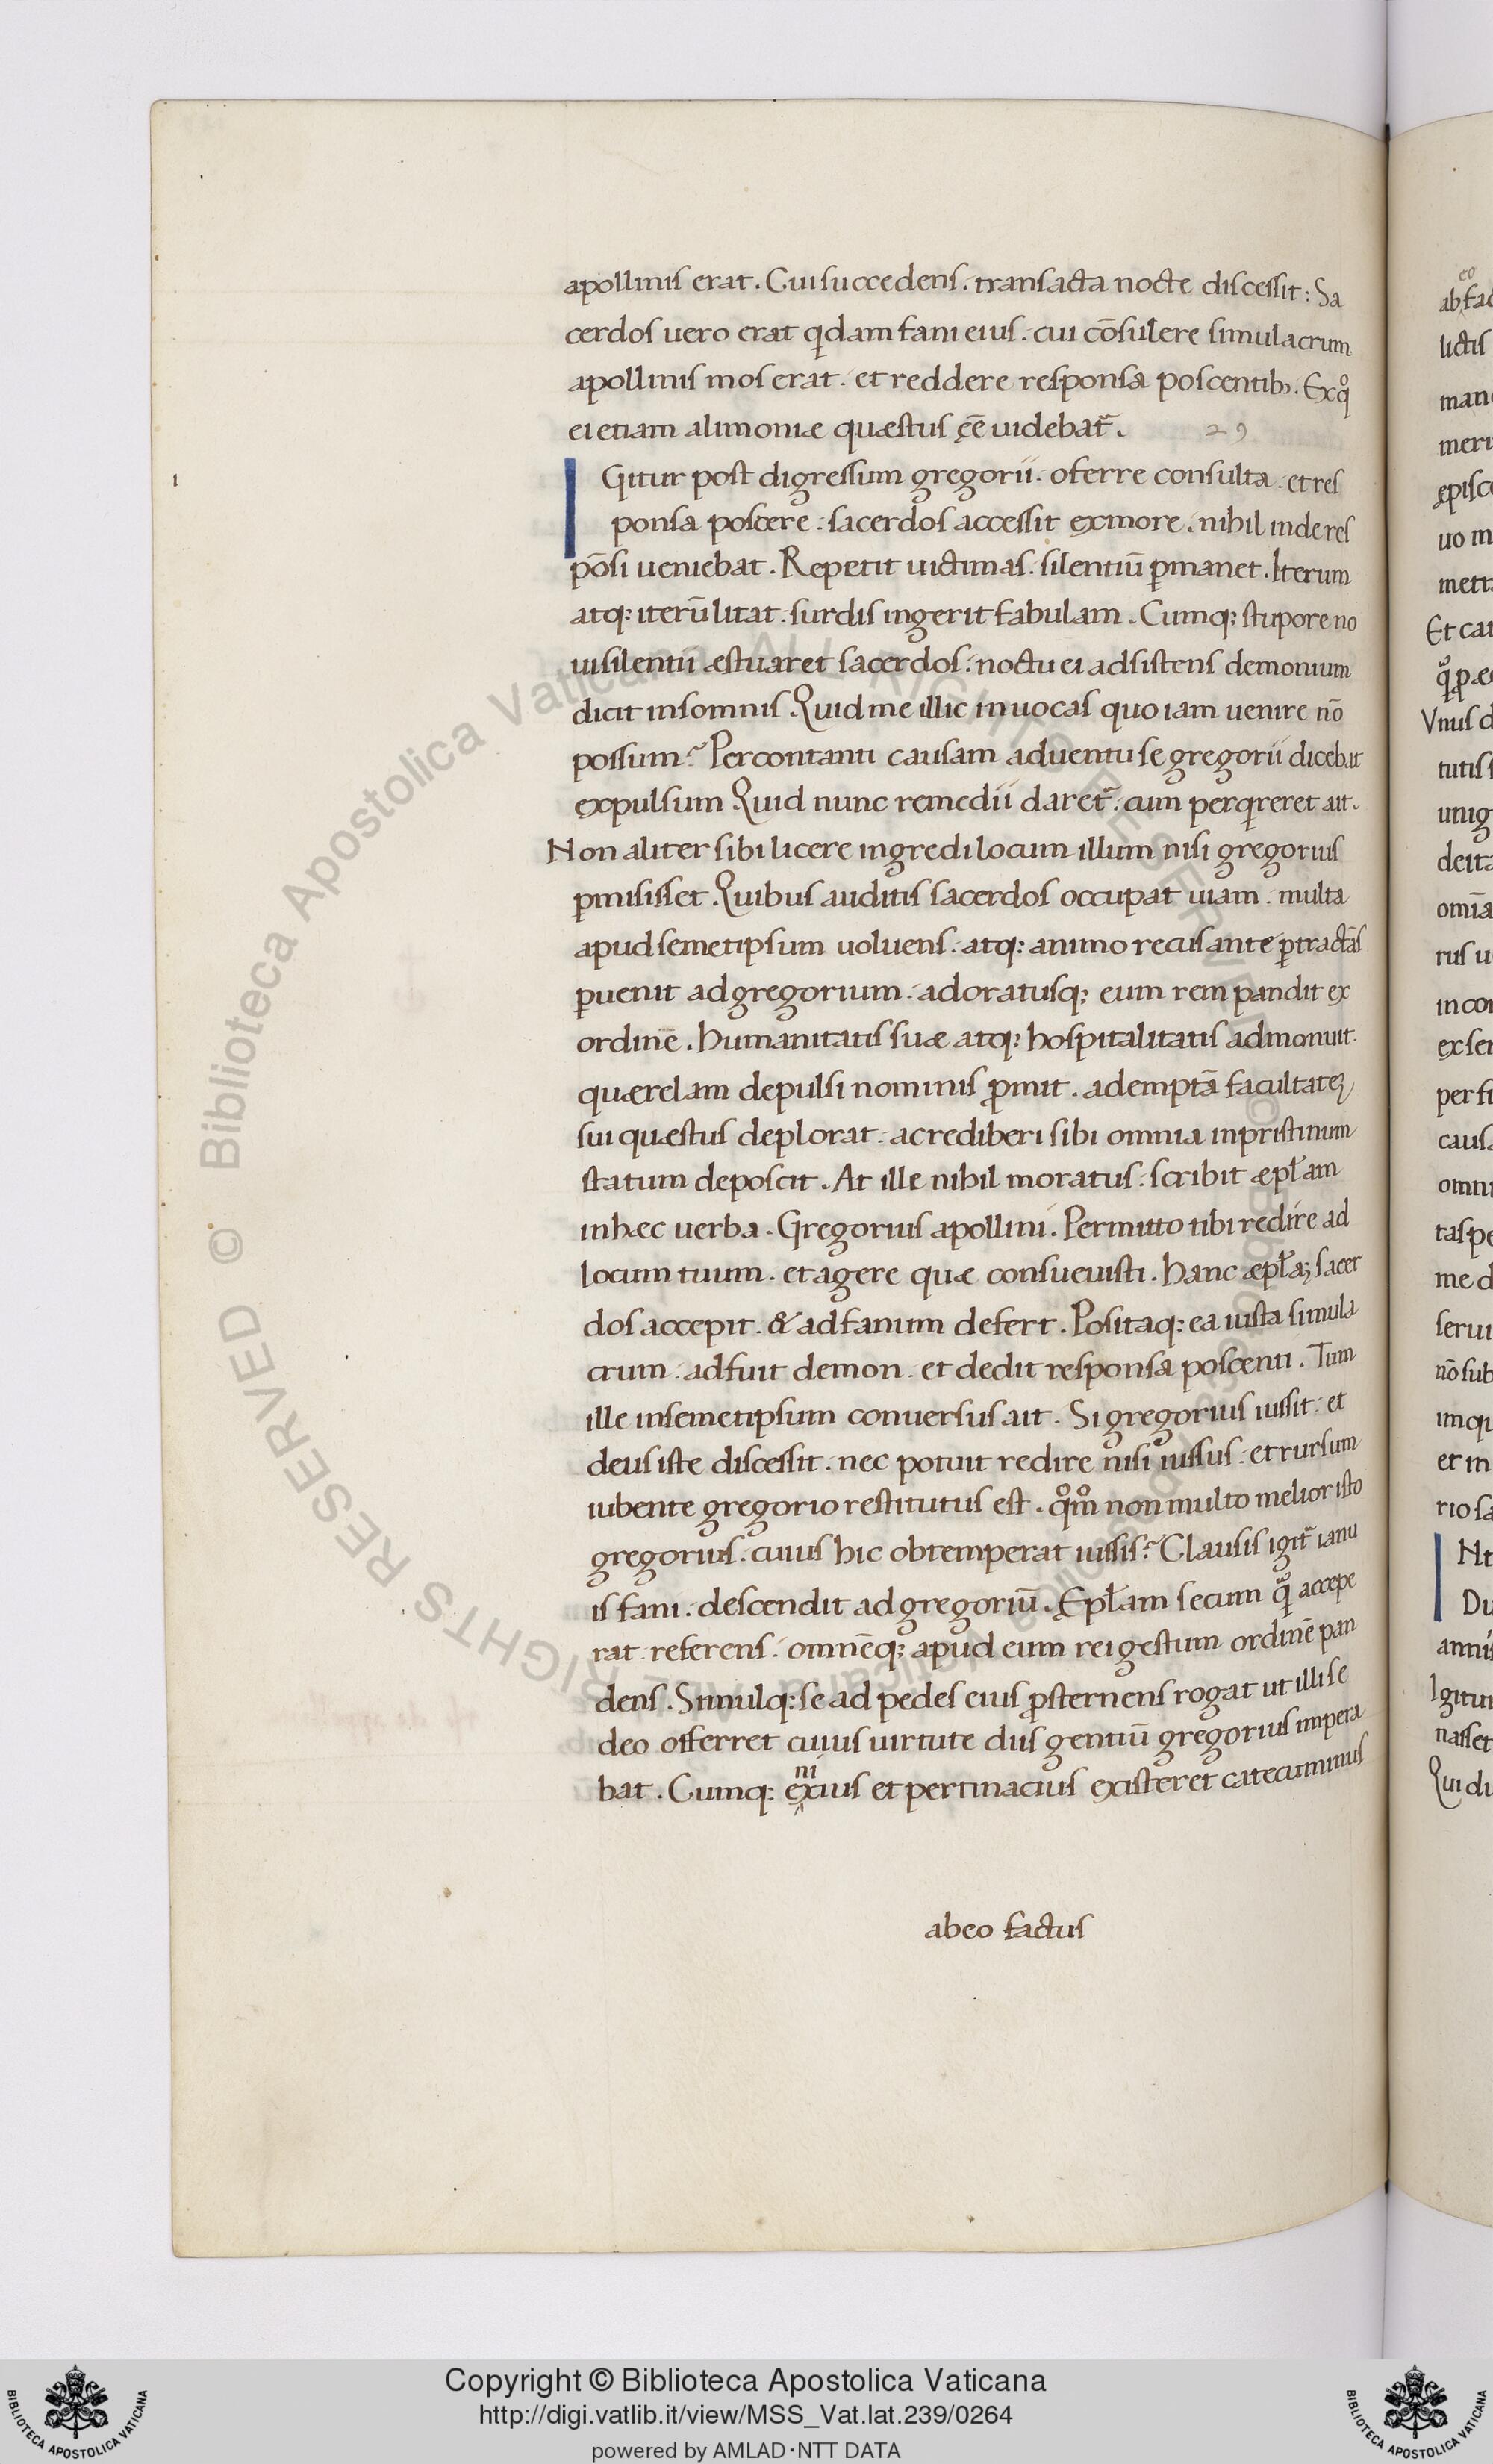 apollinis erat. Cui succedens. transacta nocte discessit: Sa
cerdos uero erat qͥdam fani eius. cui cōsulere simulacrum
apollinis mos erat. et reddere responsa poscentibꝫ. Ex qͦ
ei etiam alimoniæ quæstus eę̄ uidebat᷑.
29
IGitur post digressum gregorii. oferre consulta. et res
ponsa poscere. sacerdos accessit ex more. nihil inde res
pōsi ueniebat. Repetit uictimas. silentiū ꝑmanet. Iterum
atqꝫ iterū litat. surdis ingerit fabulam. Cumqꝫ stupore no
ui silentii æstuaret sacerdos. noctu ei adsistens demonium
dicit insomnis. Quid me illic inuocas quo iam uenire nō
possum? Percontanti causam aduentu se gregorii dicebat
expulsum. Quid nunc remedii daret᷑. cum perqͥreret ait.
Non aliter sibi licere ingredi locum illum nisi gregorius
ꝑmisisset. Quibus auditis sacerdos occupat uiam. multa
apud semetipsum uoluens. atqꝫ animo recusante ꝑtractās
ꝑuenit ad gregorium. adoratusqꝫ eum rem pandit ex
ordinē. humanitatis suæ atqꝫ hospitalitatis admonuit.
quærelam depulsi nominis ꝓmit. ademptā facultateꝫ
sui quæstus deplorat. ac rediberi sibi omnia in pristinum
statum deposcit. At ille nihil moratus. scribit æpł̄am
in hæc uerba. Gregorius apollini. Permitto tibi redire ad
locum tuum. et agere quæ consueuisti. hanc æpł̄aꝫ sacer
dos accepit. & ad fanum defert. Positaqꝫ ea iusta simula
crum. adfuit demon. et dedit responsa poscenti. Tum
ille in semetipsum conuersus ait. Si gregorius iussit. et
deus iste discessit. nec potuit redire nisi iussus. et rursum
iubente gregorio restitutus est. qͦmͦ non multo melior isto
gregorius. cuius hic obtemperat iussis? Clausis igit᷑ ianu
is fani. descendit ad gregoriū. Epł̄am secum qᷓ accepe
rat referens. omnēqꝫ apud eum rei gestum ordinē pan
dens. Simulqꝫ se ad pedes eius ꝓsternens rogat ut illi se
deo offerret cuius uirtute diis gentiū gregorius impera
ni
bat. Cumqꝫ exius et pertinacius existeret catecuminus
ab eo factus
Copyright © Biblioteca Apostolica Vaticana
http://digi.vatlib.it/view/MSS_Vat.lat.239/0264
powered by AMLAD·NTT DATA